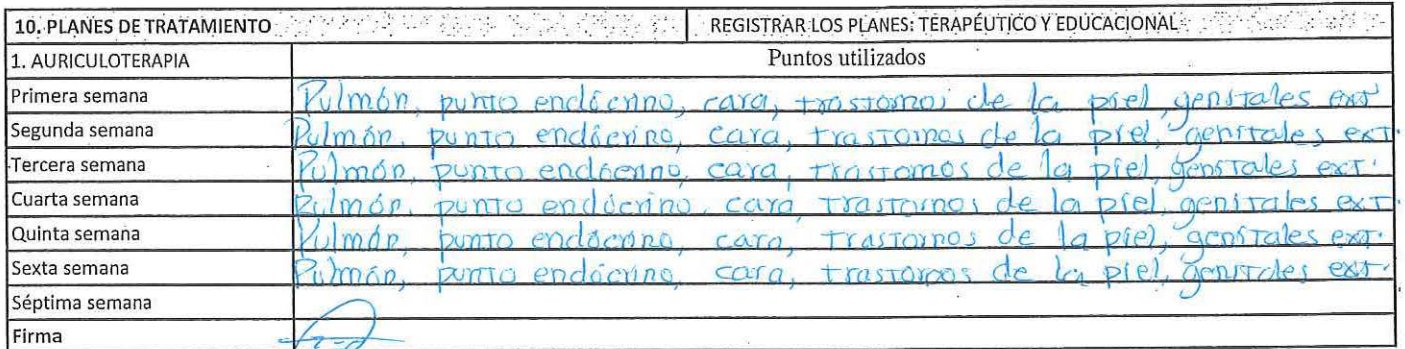 10. PLANES DE TRATAMIENTO REGISTRAR LOS PLANES: TERAPÉUTICO Y EDUCACIONAL
1. AURICULOTERAPIA Puntos utilizados
Primera semana Pulmón, punto endócrino, cara, trastornos de la piel, genitales ext.
Segunda semana Pulmón, punto endócrino, cara, trastornos de la piel, genitales ext.
Tercera semana Pulmón, punto endócrino, cara, trastornos de la piel, genitales ext.
Cuarta semana Pulmón, punto endócrino, cara, trastornos de la piel, genitales ext.
Quinta semana Pulmón, punto endócrino, cara, trastornos de la piel, genitales ext.
Sexta semana Pulmón, punto endócrino, cara, trastornos de la piel, genitales ext.
Séptima semana
Firma